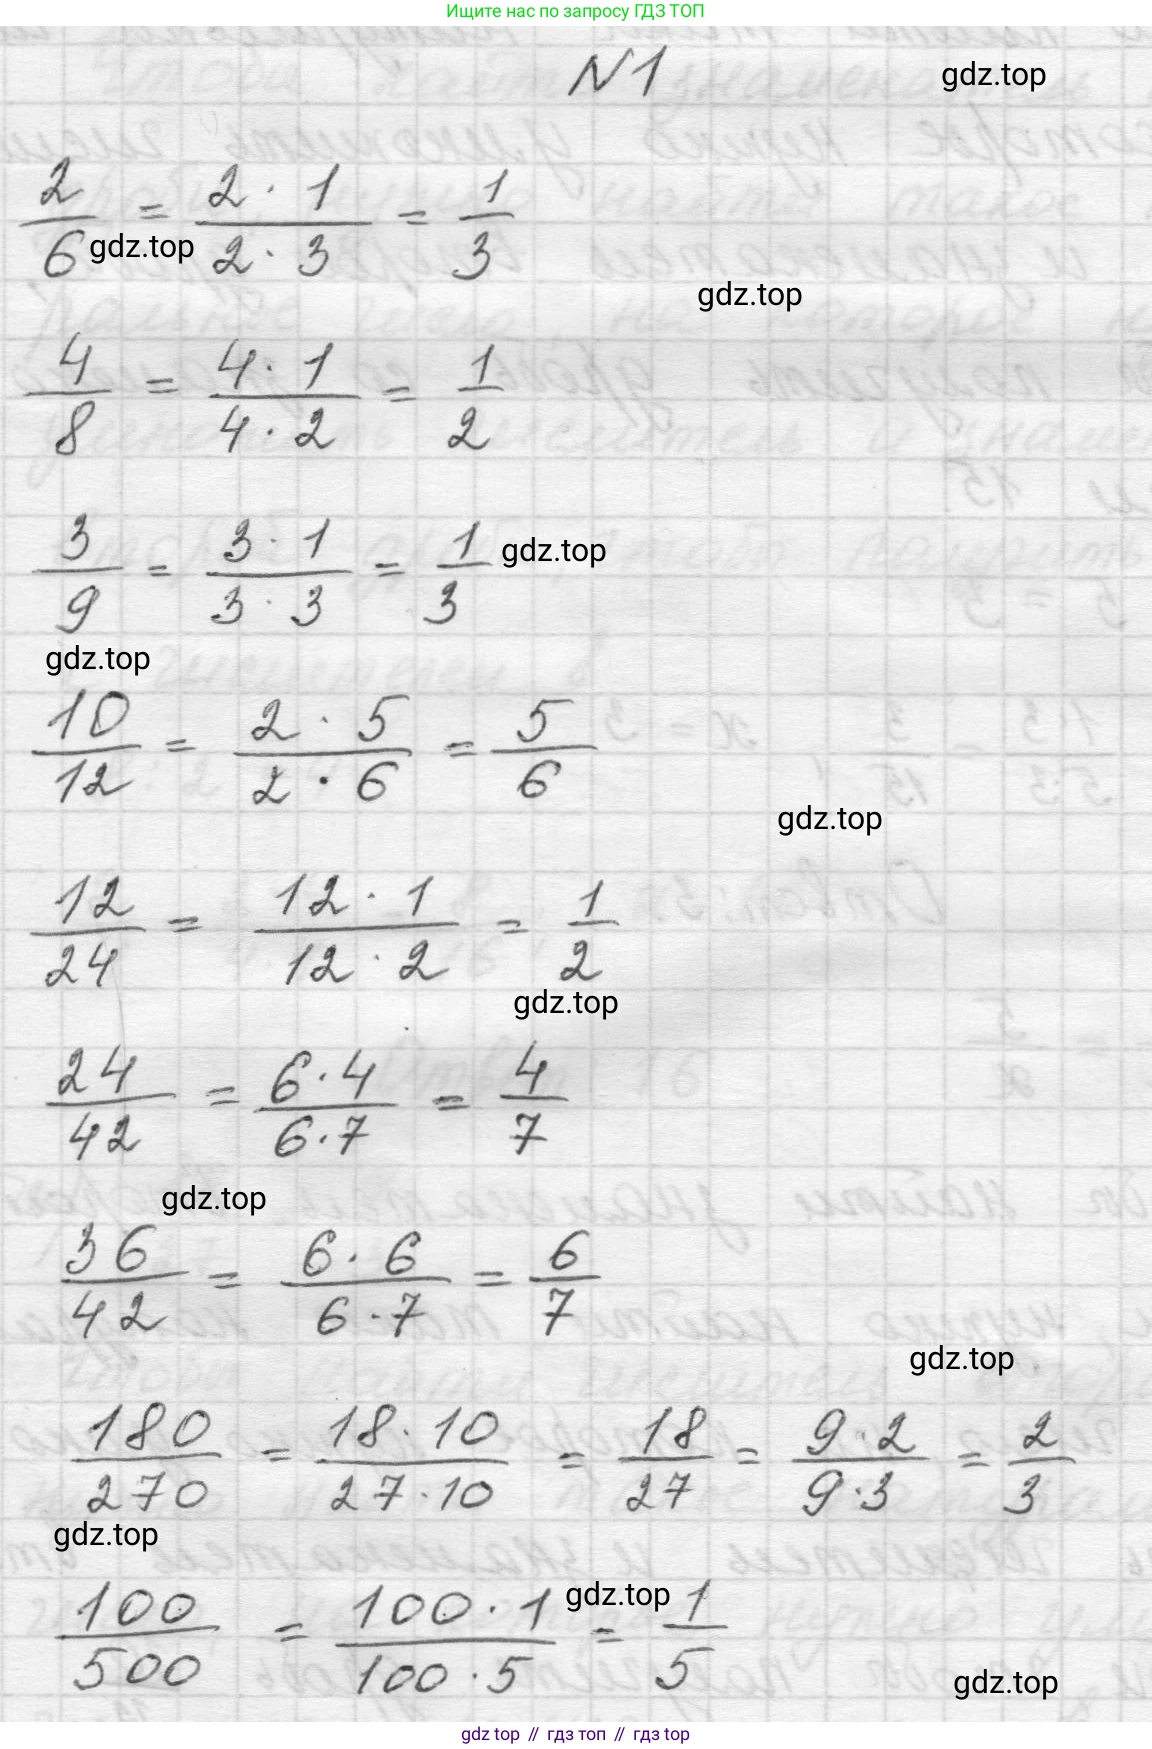 Ищите нас по запросу ГДЗ ТОП
N1
gdz.top
2/6 = 2·1/2·3 = 1/3
gdz.top
gdz.top
4/8 = 4·1/4·2 = 1/2
3/9 = 3·1/3·3 = 1/3
gdz.top
gdz.top
10/12 = 2·5/2·6 = 5/6
gdz.top
12/24 = 12·1/12·2 = 1/2
gdz.top
24/42 = 6·4/6·7 = 4/7
gdz.top
36/42 = 6·6/6·7 = 6/7
gdz.top
180/270 = 18·10/27·10 = 18/27 = 9·2/9·3 = 2/3
gdz.top
100/500 = 100·1/100·5 = 1/5
gdz.top
gdz.top
gdz top // гдз топ // гдз top